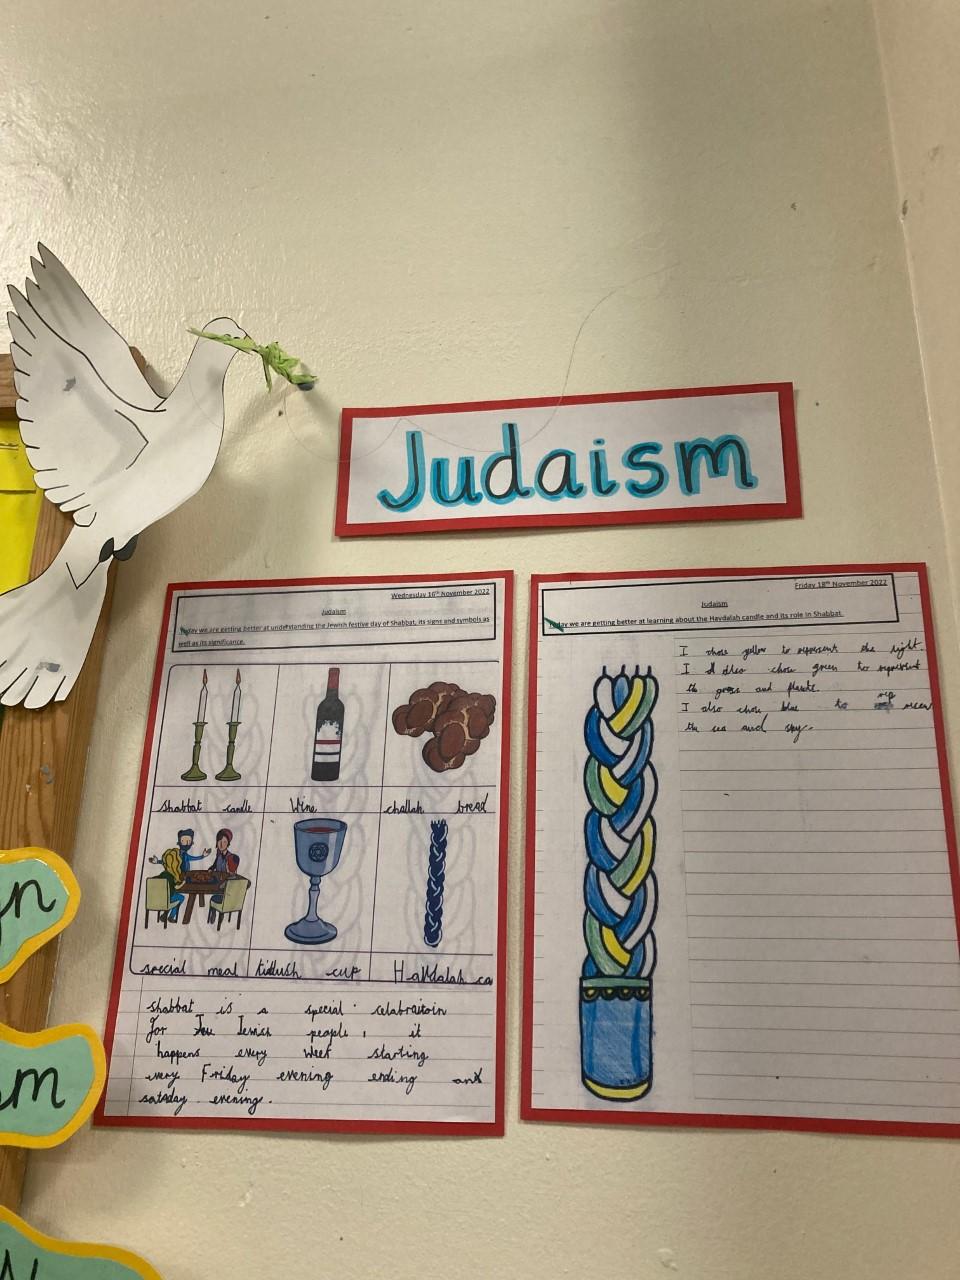 Judaism
Wednesday 16th November 2022
Judaism
Today we are getting better at understanding the Jewish festive day of Shabbat, its signs and symbols as
well as its significance.
shabbat candle
Wine
challah bread
special meal
kidush cup
Havdalah ca
shabbat is a special celebraitoin
for Jew Jewish people, it
happens every week starting
every Friday evening ending and
satsday evening.
Friday 18th November 2022
Judaism
Today we are getting better at learning about the Havdalah candle and its role in Shabbat.
I chose yellow to represent the light.
I also chose green to represent
the grass and plants.
I also chose blue to rep
the sea and sky.
gn
sm